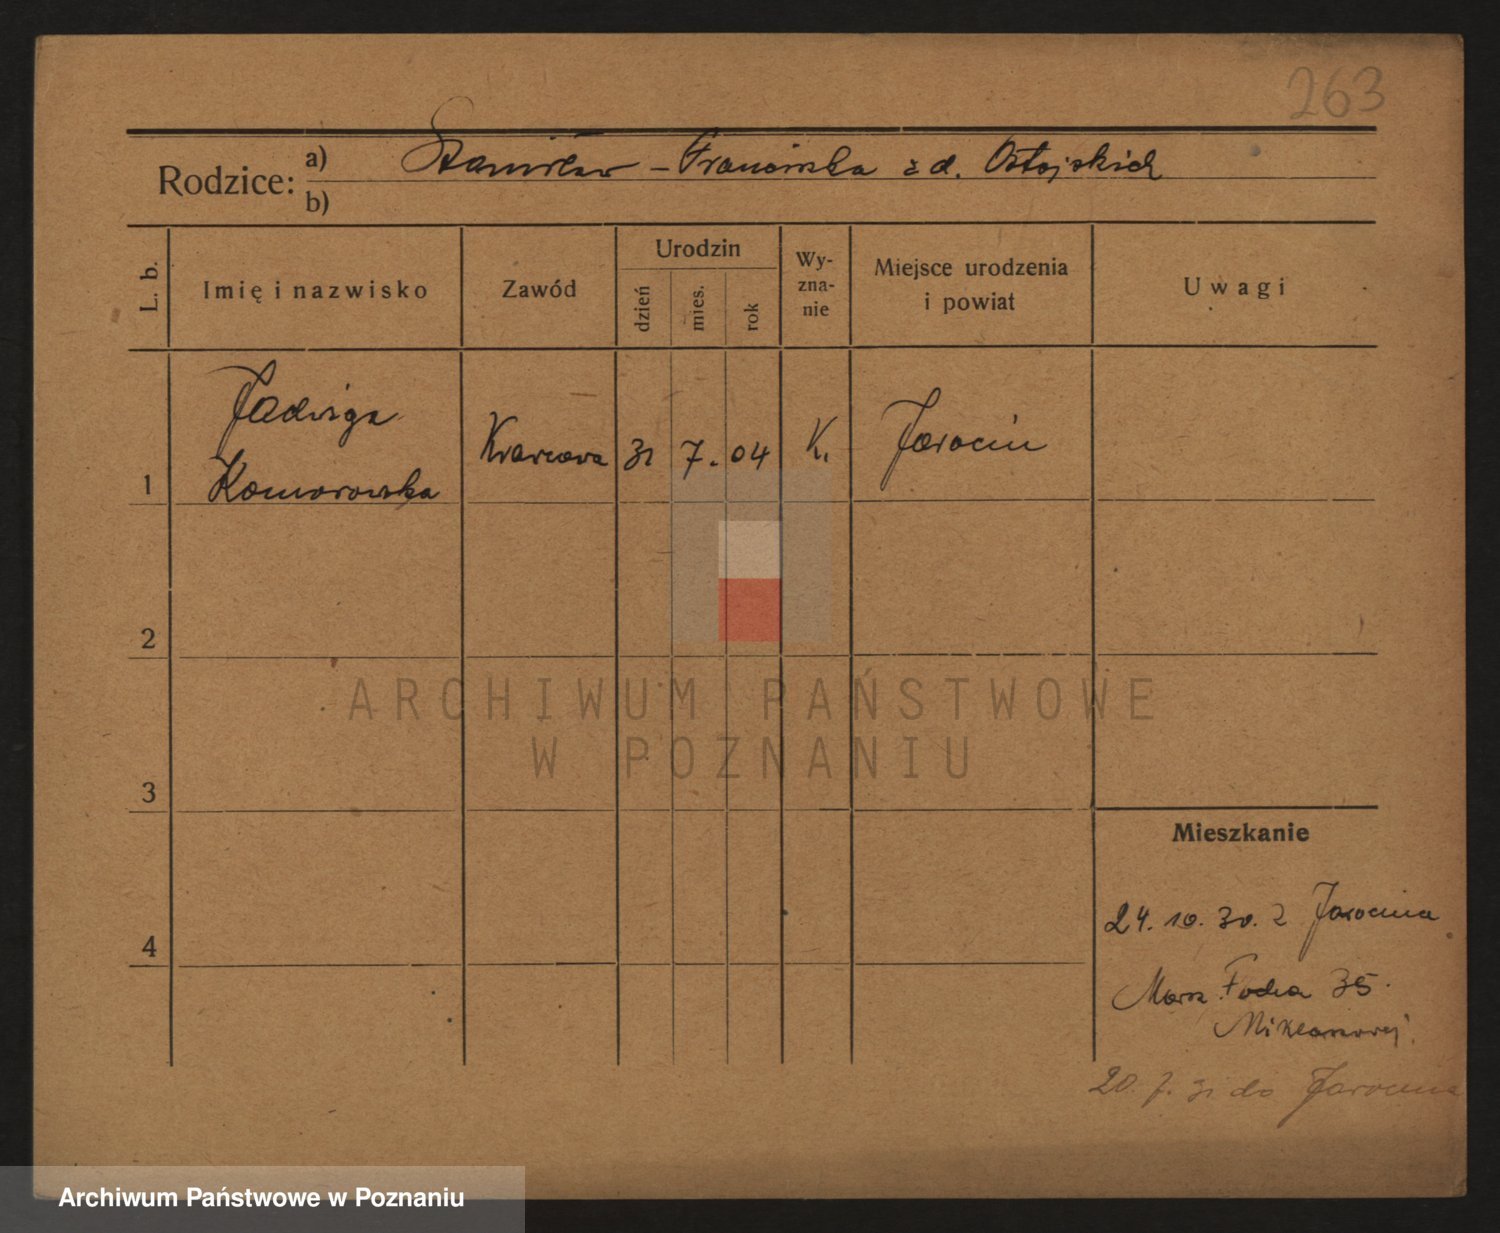 263
Rodzice: a) Stanisław – Franciszka z d. Ostojskich
b)
L. b. Imię i nazwisko Zawód Urodzin dzień mies. rok Wy-zna-nie Miejsce urodzenia i powiat Uwagi
Jadwiga
1 Komorowska Krawcowa 31 7. 04 K. Jarocin
2
3
4
ARCHIWUM PAŃSTWOWE
W POZNANIU
Mieszkanie
24. 10. 30. z Jarocina
Marsz. Focha 35.
20. 7. 31 do Jarocina
Archiwum Państwowe w Poznaniu